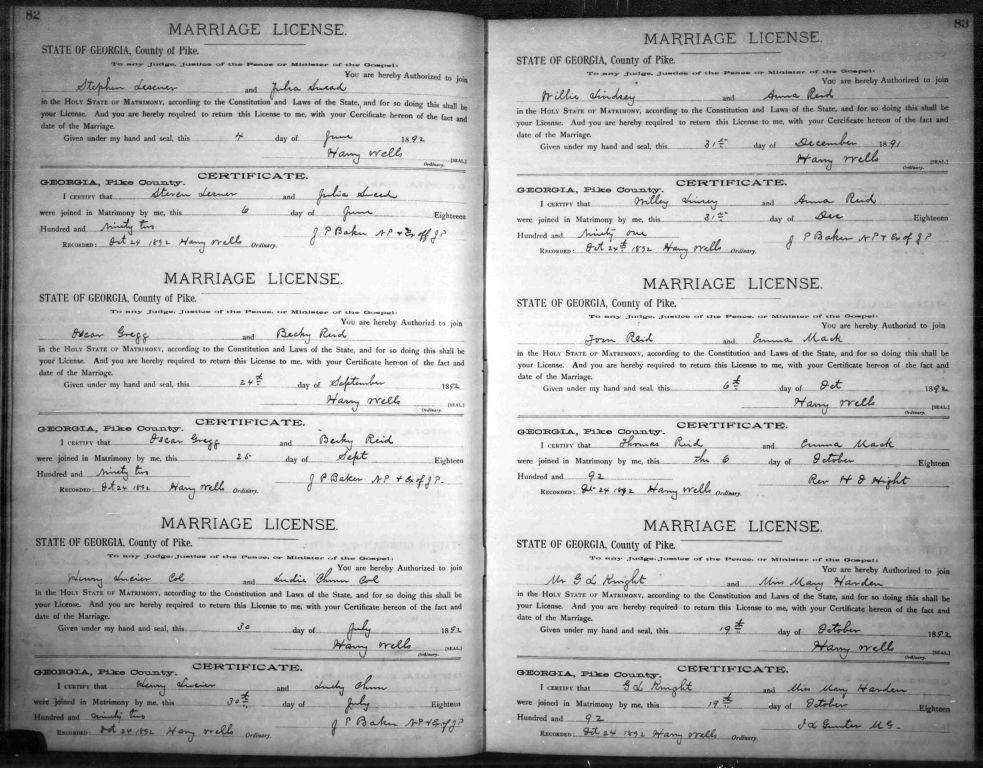 82
MARRIAGE LICENSE.
STATE OF GEORGIA, County of Pike.
To any Judge, Justice of the Peace or Minister of the Gospel:
You are hereby Authorized to join
Stephen Lesener and Julia Snead
in the HOLY STATE OF MATRIMONY, according to the Constitution and Laws of the State, and for so doing this shall be
your License. And you are hereby required to return this License to me, with your Certificate hereon of the fact and
date of the Marriage.
Given under my hand and seal, this 4 day of June 1892
Harry Wells [SEAL.]
Ordinary.
CERTIFICATE.
GEORGIA, Pike County.
I CERTIFY that Steven Lesner and Julia Sneed
were joined in Matrimony by me, this 6 day of June Eighteen
Hundred and ninety two
J P Baker N P & Ex off J P
RECORDED: Oct 24 1892 Harry Wells Ordinary.
MARRIAGE LICENSE.
STATE OF GEORGIA, County of Pike.
To any Judge, Justice of the Peace, or Minister of the Gospel:
You are hereby Authorized to join
Oscar Gregg and Becky Reid
in the HOLY STATE OF MATRIMONY, according to the Constitution and Laws of the State, and for so doing this shall be
your License. And you are hereby required to return this License to me, with your Certificate hereon of the fact and
date of the Marriage.
Given under my hand and seal, this 24th day of September 1892
Harry Wells [SEAL.]
Ordinary.
CERTIFICATE.
GEORGIA, Pike County.
I CERTIFY that Oscar Gregg and Becky Reid
were joined in Matrimony by me, this 25 day of Sept Eighteen
Hundred and ninety two
J P Baker N P & Ex of J P.
RECORDED: Oct 24 1892 Harry Wells Ordinary.
MARRIAGE LICENSE.
STATE OF GEORGIA, County of Pike.
To any Judge, Justice of the Peace, or Minister of the Gospel:
You are hereby Authorized to join
Henry Col and Chunn Col
in the HOLY STATE OF MATRIMONY, according to the Constitution and Laws of the State, and for so doing this shall be
your License. And you are hereby required to return this License to me, with your Certificate hereon of the fact and
date of the Marriage.
Given under my hand and seal, this 30 day of July 1892
Harry Wells [SEAL.]
Ordinary.
CERTIFICATE.
GEORGIA, Pike County.
I CERTIFY that Henry and Chunn
were joined in Matrimony by me, this 30th day of July Eighteen
Hundred and ninety two
J P Baker N P & Ex of J P
RECORDED: Oct 24 1892 Harry Wells Ordinary.
83
MARRIAGE LICENSE.
STATE OF GEORGIA, County of Pike.
To any Judge, Justice of the Peace or Minister of the Gospel:
You are hereby Authorized to join
Willie Lindsey and Anna Reid
in the HOLY STATE OF MATRIMONY, according to the Constitution and Laws of the State, and for so doing this shall be
your License. And you are hereby required to return this License to me, with your Certificate hereon of the fact and
date of the Marriage.
Given under my hand and seal, this 31st day of December 1891
Harry Wells [SEAL.]
Ordinary.
CERTIFICATE.
GEORGIA, Pike County.
I CERTIFY that Willey Linsey and Anna Reid
were joined in Matrimony by me, this 31st day of Dec Eighteen
Hundred and ninety one
J P Baker N P & Ex of J P
RECORDED: Oct 24th 1892 Harry Wells Ordinary.
MARRIAGE LICENSE.
STATE OF GEORGIA, County of Pike.
To any Judge, Justice of the Peace, or Minister of the Gospel:
You are hereby Authorized to join
Tom Reid and Emma Mack
in the HOLY STATE OF MATRIMONY, according to the Constitution and Laws of the State, and for so doing this shall be
your License. And you are hereby required to return this License to me, with your Certificate hereon of the fact and
date of the Marriage.
Given under my hand and seal, this 6th day of Oct 1892
Harry Wells [SEAL.]
Ordinary.
CERTIFICATE.
GEORGIA, Pike County.
I CERTIFY that Thomas Reid and Emma Mack
were joined in Matrimony by me, this the 6 day of October Eighteen
Hundred and 92
Rev H D Hight
RECORDED: Oct 24 1892 Harry Wells Ordinary.
MARRIAGE LICENSE.
STATE OF GEORGIA, County of Pike.
To any Judge, Justice of the Peace, or Minister of the Gospel:
You are hereby Authorized to join
Mr G L Knight and Miss Mary Harden
in the HOLY STATE OF MATRIMONY, according to the Constitution and Laws of the State, and for so doing this shall be
your License. And you are hereby required to return this License to me, with your Certificate hereon of the fact and
date of the Marriage.
Given under my hand and seal, this 19th day of October 1892
Harry Wells [SEAL.]
Ordinary.
CERTIFICATE.
GEORGIA, Pike County.
I CERTIFY that G L Knight and Miss Mary Harden
were joined in Matrimony by me, this 19th day of October Eighteen
Hundred and 92
Gunter M G.
RECORDED: Oct 24 1892 Harry Wells Ordinary.